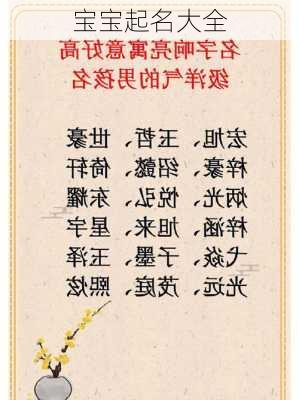 宝宝起名大全
名字响亮寓意好高
级洋气的男孩名
宏旭、玉哲、世豪
梓豪、绍懿、倚轩
炳光、悦弘、东耀
梓涵、旭来、星宇
弋焱、子墨、玉泽
光远、茂庭、熙炫